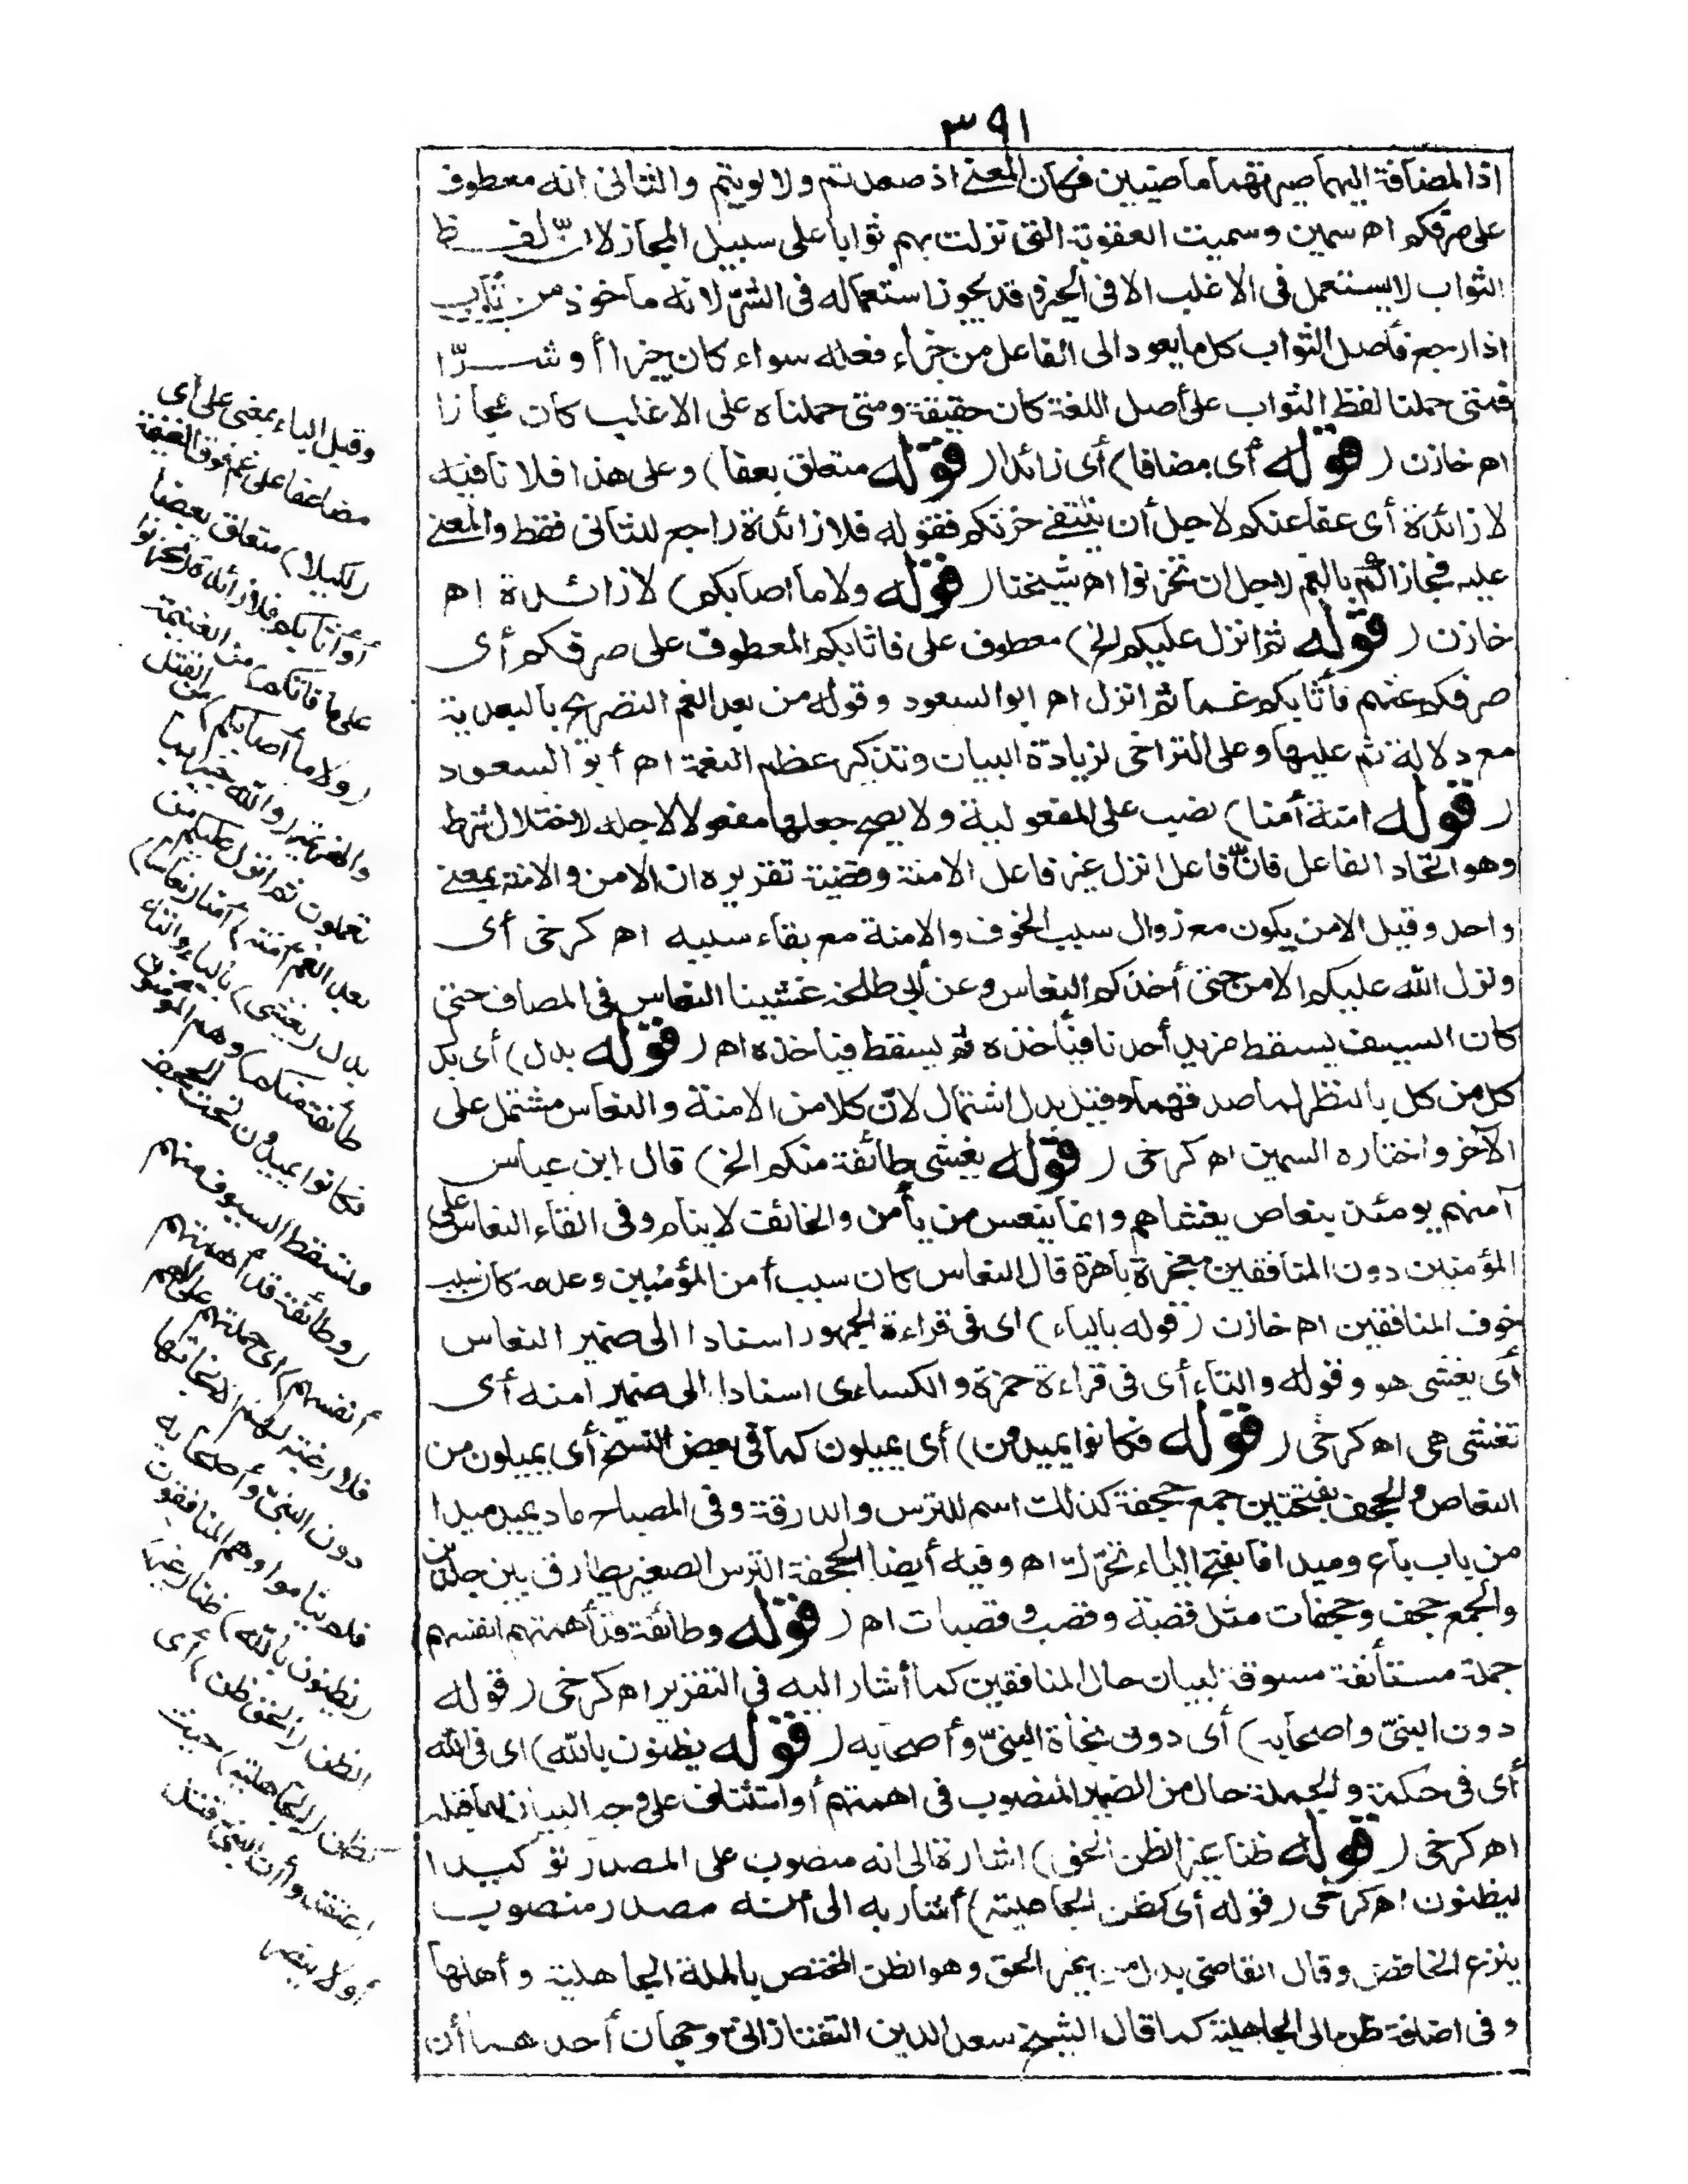 ٣٩١
اذ المضافة اليهما صيرتهما ماضيين فكان المعنى اذ صعدتم ولا لويتم والثانى انه معطوف
على صرفكم اه سمين وسميت العقوبة التى نزلت بهم ثوابا على سبيل المجاز لانّ لفظ
الثواب لا يستعمل فى الاغلب الا فى الخير وقد يجوز استعماله فى الشرّ لانه ماخوذ من ثاب
اذا رجع فأصل الثواب كل ما يعود الى الفاعل من جزاء فعله سواء كان خيرا أو شرّا
فمتى حملنا لفظ الثواب على أصل اللغة كان حقيقة ومتى حملناه على الاغلب كان مجازا
اه خازن (قوله أى مضافا) أى زائدا (قوله متعلق بعفا) وعلى هذا فلا نافية
لا زائدة أى عفا عنكم لاجل أن ينتفى حزنكم فقوله فلا زائدة راجع للثانى فقط والمعنى
عليه فجازاكم بالغم لاجل ان تحزنوا اه شيخنا (قوله ولا ما اصابكم) لا زائدة اه
خازن (قوله ثم انزل عليكم الخ) معطوف على فاثابكم المعطوف على صرفكم أى
صرفكم عنهم فأثابكم غما ثم انزل اه ابو السعود وقوله من بعد الغم التصريح بالبعدية
مع دلالة ثم عليها وعلى التراخى لزيادة البيان وتذكير عظم النعمة اه أبو السعود
(قوله امنة أمنا) نصب على المفعولية ولا يصح جعلها مفعولا لاجله لاختلال شرطه
وهو اتحاد الفاعل فانّ فاعل انزل غير فاعل الامنة وقضية تقريره ان الامن والامنة بمعنى
واحد وقيل الامن يكون مع زوال سبب الخوف والامنة مع بقاء سببه اه كرخى أى
ونزل الله عليكم الامن حتى أخذكم النعاس وعن أبى طلحة غشينا النعاس فى المصاف حتى
كان السيف يسقط من يد أحدنا فيأخذه ثم يسقط فيأخذه اه (قوله بدل) أى بدل
كل من كل بالنظر لما صدقهما وقيل بدل اشتمال لانّ كلا من الامنة والنعاس مشتمل على
الآخر واختاره السمين اه كرخى (قوله يغشى طائفة منكم الخ) قال ابن عباس
آمنهم يومئذ بنعاس يغشاهم وانما ينعس من يأمن والخائف لا ينام وفى القاء النعاس على
المؤمنين دون المنافقين معجزة باهرة قال النعاس كان سبب أمن المؤمنين وعدمه كان سبب
خوف المنافقين اه خازن (قوله بالياء) اى فى قراءة الجمهور اسنادا الى ضمير النعاس
أى يغشى هو وقوله والتاء أى فى قراءة حمزة والكساءى اسنادا الى ضمير امنه أى
تغشى هى اه كرخى (قوله فكانوا يميدمن) أى يميلون كما فى بعض النسخ أى يميلون من
النعاس والحجف بفتحتين جمع حجفة كذلك اسم للترس والدرقة وفى المصباح ماد يميد ميدا
من باب باع وميدانا بفتح الياء تحرّك اه وفيه أيضا الحجفة الترس الصغير يطارق بين جلدين
والجمع حجف وحجفات مثل قصبة وقصب وقصبات اه (قوله وطائفة قد أهمتهم انفسهم
جملة مستأنفة مسوقة لبيان حال المنافقين كما أشار اليه فى التقرير اه كرخى (قوله
دون النبىّ واصحابه) أى دون نجاة النبىّ وأصحابه (قوله يظنون بالله) اى فى الله
أى فى حكمة والجملة حال من الضمير المنصوب فى اهمتهم أو استئناف على وجه البيان لما قبله
اه كرخى (قوله ظنا غير الظن الحق) اشارة الى انه منصوب على المصدر توكيدا
ليظنون اه كرخى (قوله أى كظن الجاهلية) أشار به الى أنه مصدر منصوب
بنزع الخافض وقال القاضى بدل من غير الحق وهو الظن المختص بالملة الجاهلية وأهلها
وفى اضافة ظن الى الجاهلية كما قال الشيخ سعد الدين التفتازانىّ وجهان أحدهما أن
وقيل الباء بمعنى على أى
مضاعفا على غم فوت الغنيمة
(لكيلا) متعلق بعفا
أو أثابكم فلا زائدة (تحزنوا
على ما فاتكم) من الغنيمة
(ولا ما أصابكم) من القتل
والهزيمة (والله خبير بما
تعملون ثم انزل عليكم من
بعد الغم أمنة) أمنا (نعاسا)
بدل (يغشى) بالياء والتاء
(طائفة منكم) وهم المؤمنون
فكانوا يميدون تحت الحجف
وتسقط السيوف منهم
(وطائفة قد أهمتهم
أنفسهم) اى حملتهم على الهم
فلا رغبة لهم الا نجاتها
دون النبىّ وأصحابه
فلم يناموا وهم المنافقون
(يظنون بالله) ظنا (غير)
الظن (الحق ظن) أى
كظن (الجاهلية) حيث
اعتقدوا أن النبىّ قتل
أو لا ينصر